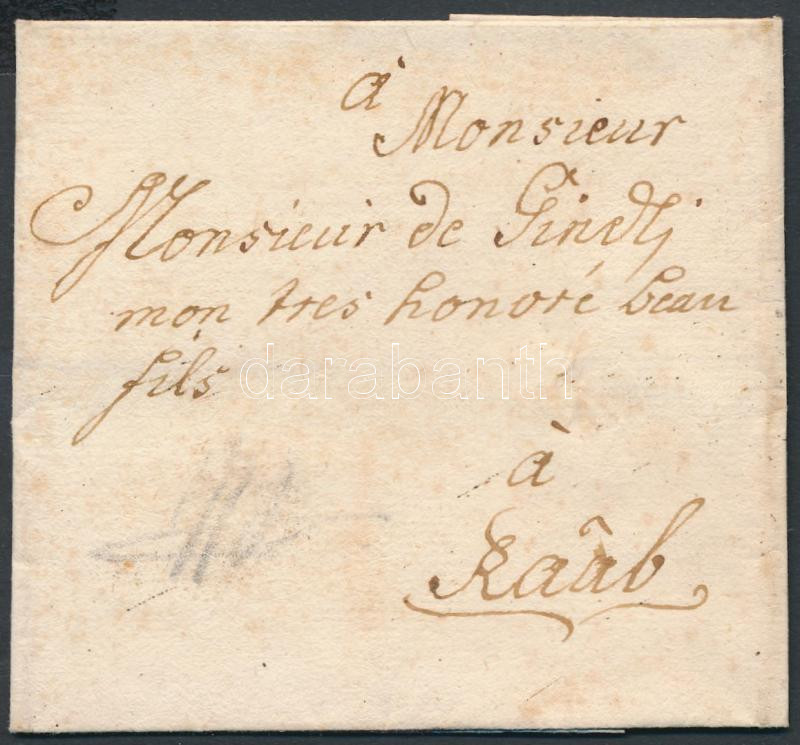 à
Monsieur
Monsieur de Gindlj
mon tres honoré beau
fils
darabanth
à
Raâb